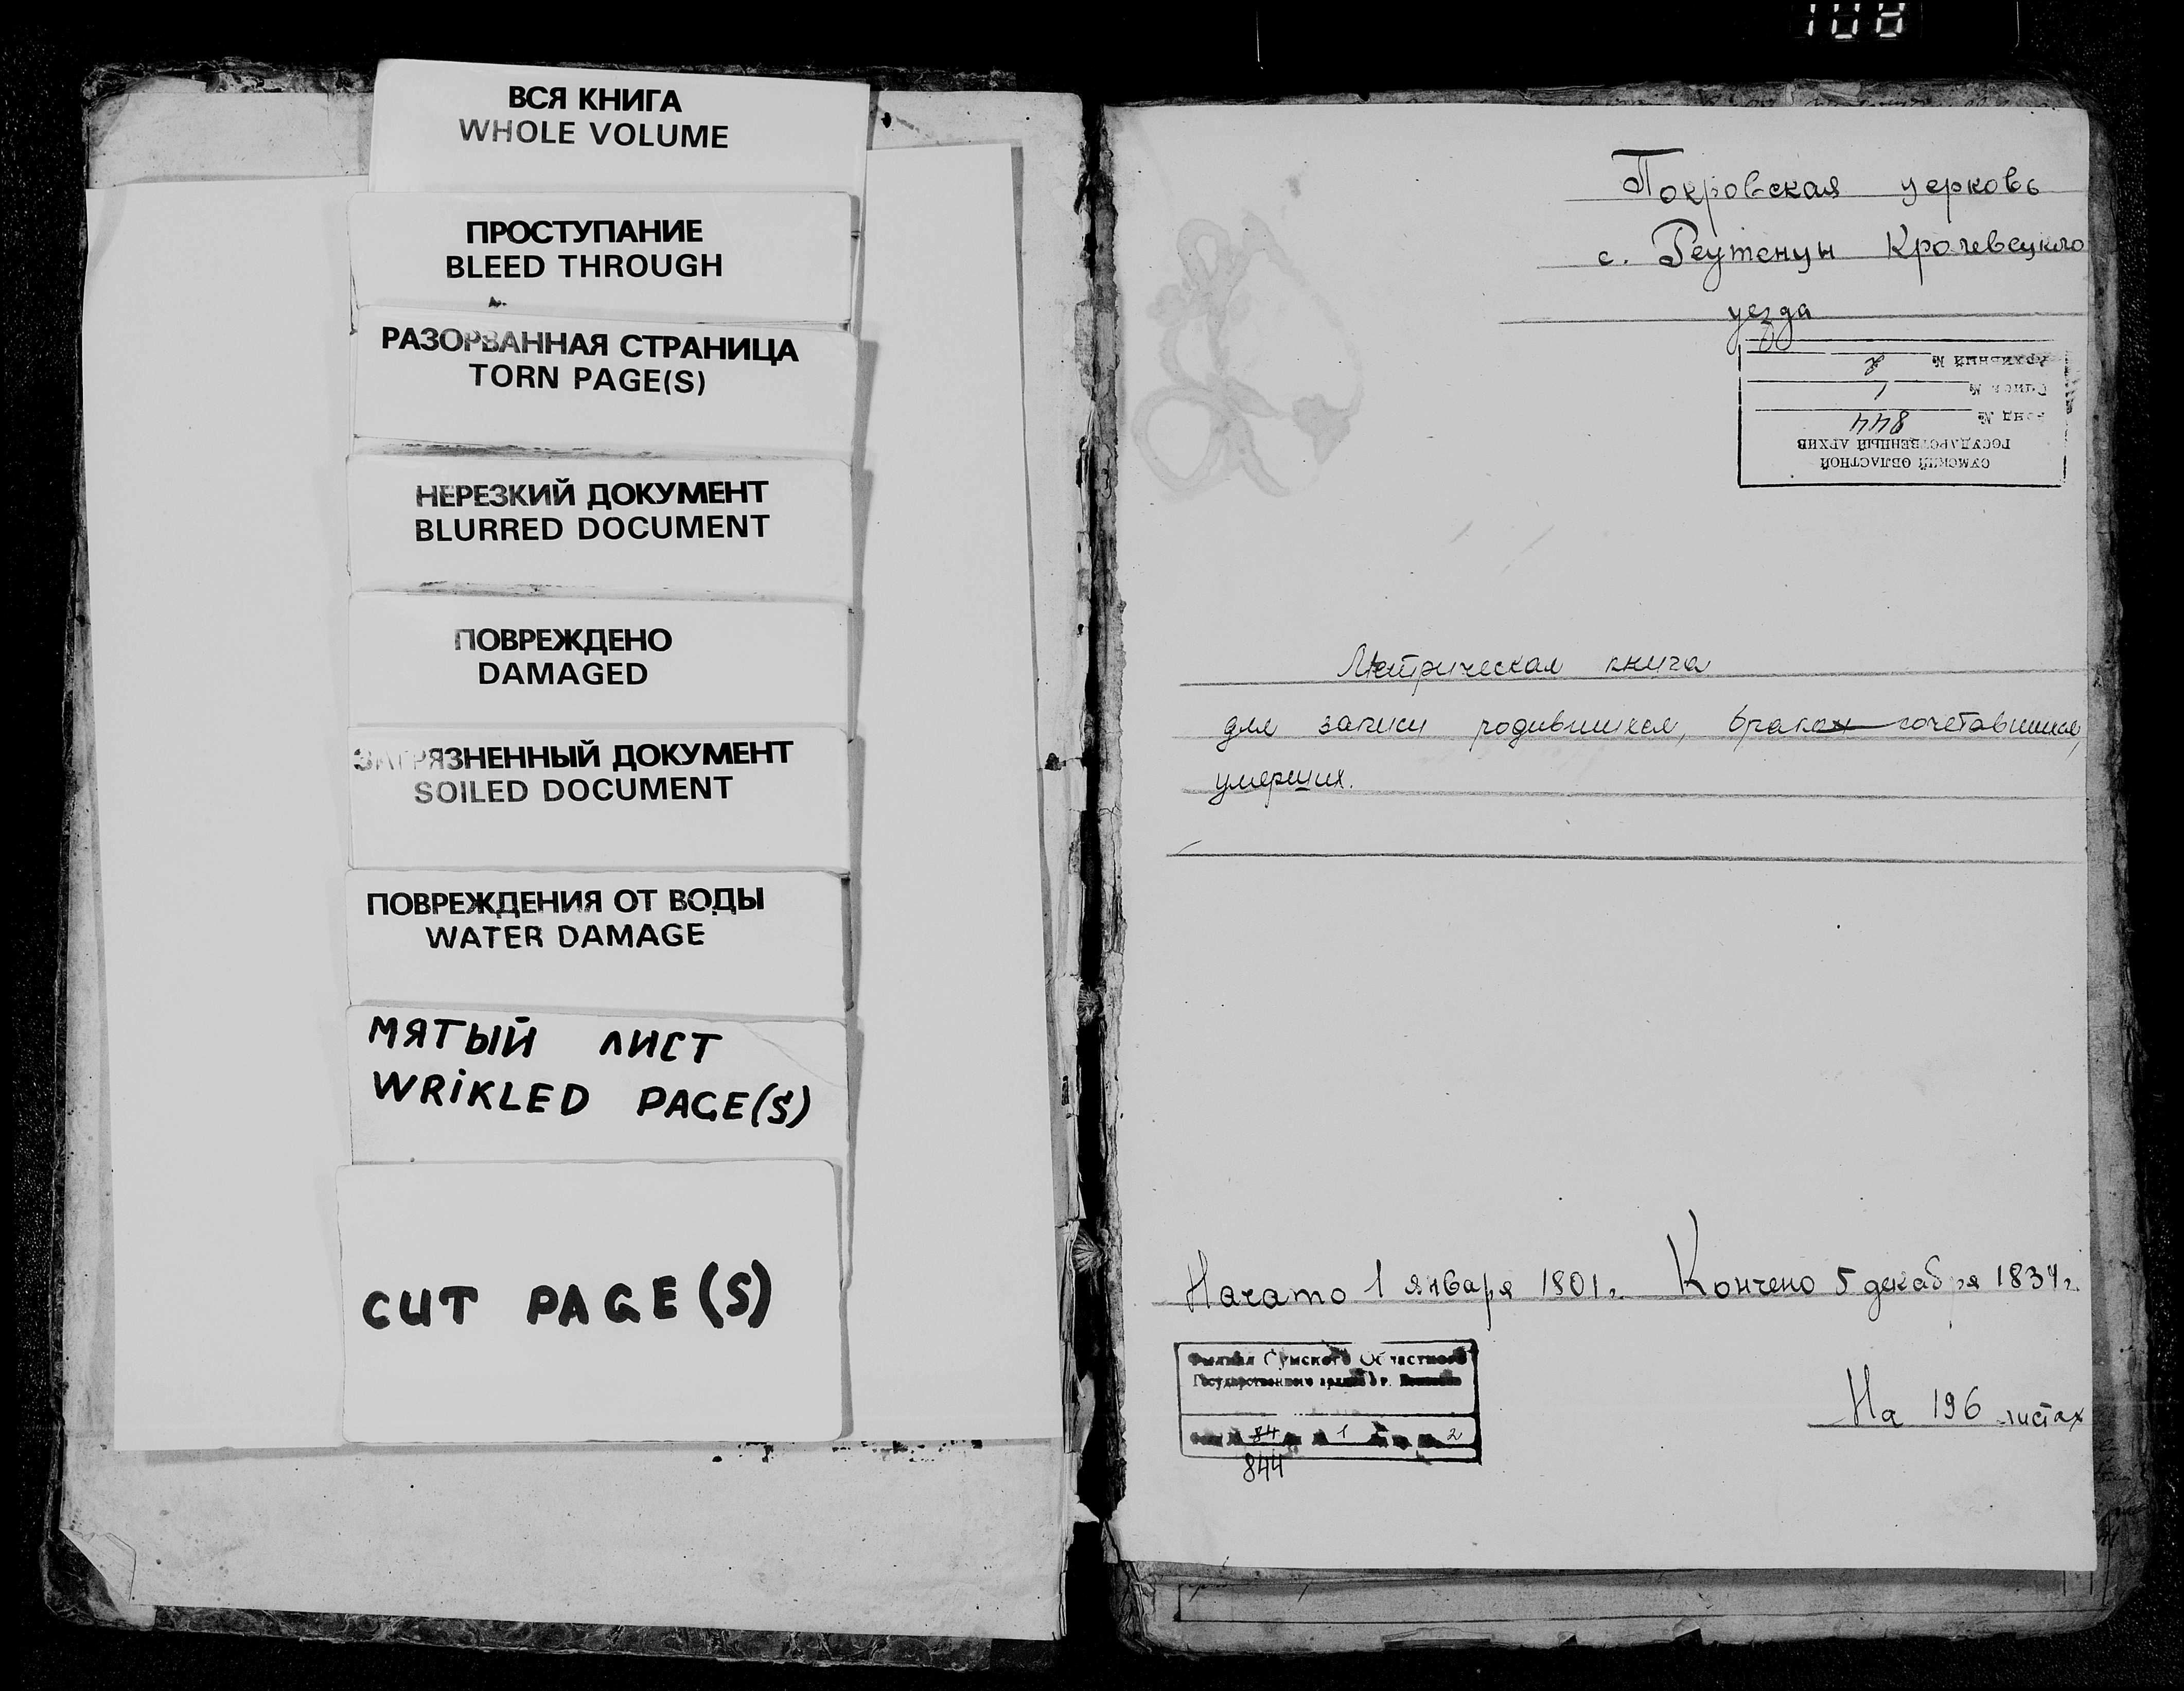 108
ВСЯ КНИГА
WHOLE VOLUME
ПРОСТУПАНИЕ
BLEED THROUGH
РАЗОРВАННАЯ СТРАНИЦА
TORN PAGE(S)
НЕРЕЗКИЙ ДОКУМЕНТ
BLURRED DOCUMENT
ПОВРЕЖДЕНО
DAMAGED
ЗАГРЯЗНЕННЫЙ ДОКУМЕНТ
SOILED DOCUMENT
ПОВРЕЖДЕНИЯ ОТ ВОДЫ
WATER DAMAGE
МЯТЫЙ ЛИСТ
WRIKLED PAGE(S)
CUT PAGE(S)
Покровская церковь
с. Реутенцы Кролевецкого
уезда
СУМСКИЙ ОБЛАСТНОЙ
ГОСУДАРСТВЕННЫЙ АРХИВ
Фонд № 844
Опись № 1
Архивный № 2
Метрическая книга
для записи родившихся, бракосочетавшихся,
умерших.
Начато 1 января 1801 г. Кончено 5 декабря 1834 г.
Филиал Сумского Областного
Государственного архива в г.
84 1 2
844
На 196 листах